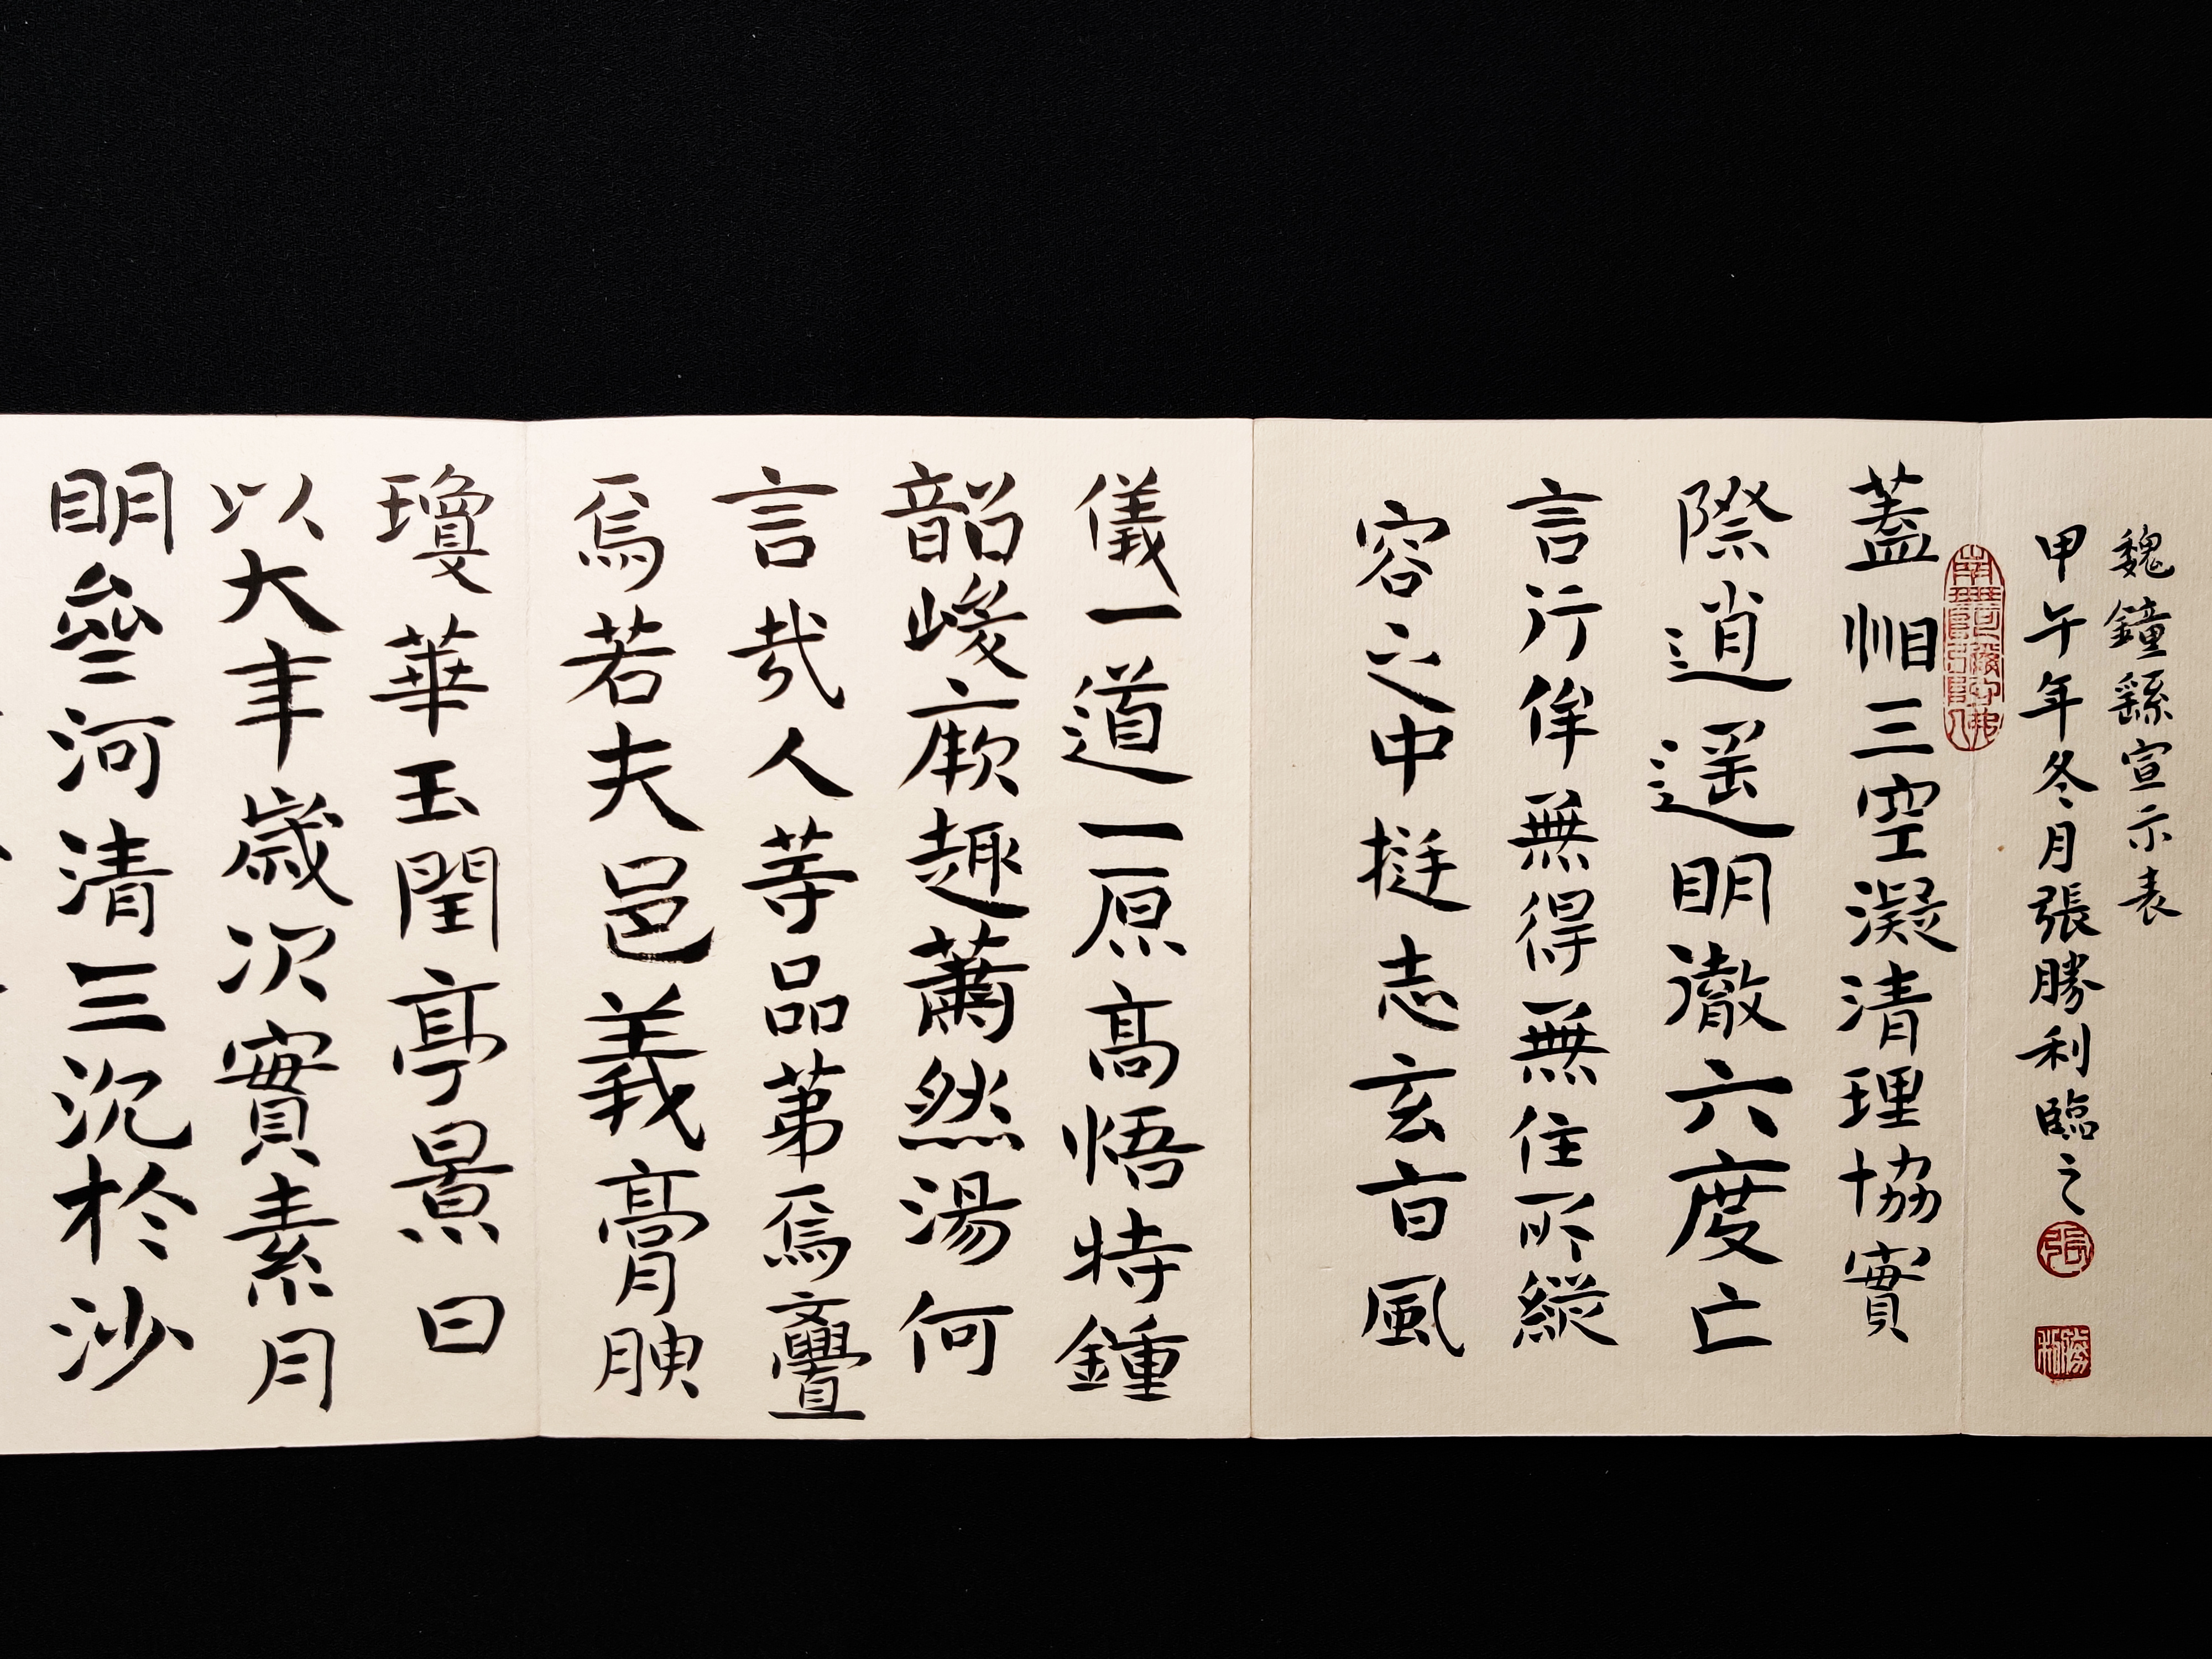 魏鐘繇宣示表
甲午年冬月張勝利臨之
張
勝利
蓋怞三空凝清理協實
際逍遥明徹六度亡
言行侔無得無住所縱
容之中挺志玄旨風
儀一道一原高悟特鍾
韶峻厥趣蕭然湯何
言哉人等品第焉亹
焉若夫邑義膏腴
瓊華玉閏亭景曰
以大年歲次實素月
明壘河清三沉於沙